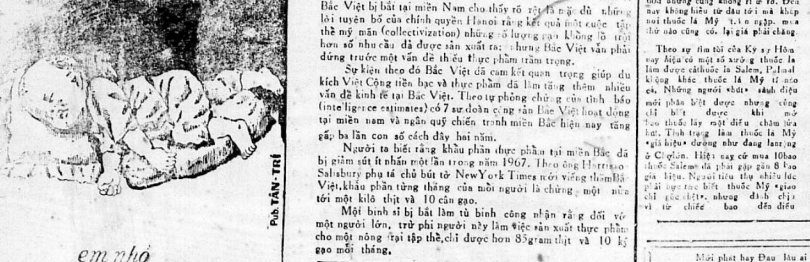 Pub. TÂN-TRÍ
em nhỏ
Bắc Việt bị bắt tại miền Nam cho thấy rõ rệt là mặc dù những
lời tuyên bố của chính quyền Hanoi rằng kết quả một cuộc tập
thể mỹ mãn (collectivization) những số lượng gạo khổng lồ trội
hơn số nhu cầu đã được sản xuất ra; nhưng Bắc Việt vẫn phải
đứng trước một vấn đề thiếu thực phẩm trầm trọng.
Sự kiện theo đó Bắc Việt đã cam kết quan trọng giúp du
kích Việt Cộng tiền bạc và thực phẩm đã làm tăng thêm nhiều
vấn đề kinh tế tại Bắc Việt. Theo tự phỏng chừng của tình báo
(intelligence estimates) có 7 sư đoàn cộng sản Bắc Việt hoạt động
tại miền nam và ngân quỹ chiến tranh miền Bắc hiện nay tăng
gấp ba lần con số cách đây hai năm.
Người ta biết rằng khẩu phần thực phẩm tại miền Bắc đã
bị giảm sút ít nhấn một lần trong năm 1967. Theo ông Harrison
Salisbury phụ tá chủ bút tờ NewYork Times mới viếng thăm Bắc
Việt, khẩu phần từng tháng của mỗi người là chừng một nửa
tới một kilô thịt và 10 cân gạo.
Một binh sĩ bị bắt làm tù binh công nhận rằng đối với
một người lớn, trừ phi người này làm việc sản xuất thực phẩm
cho một nông trại tập thể, chỉ được hơn 85gram thịt và 10 ký
gạo mỗi tháng.
nay không hiểu từ đâu tới mà khắp
nơi thuốc lá Mỹ tràn ngập, mua
thứ nào cũng có, lại giá phải chăng.
Theo sự tìm tòi của Ký sự Hôm
nay hiện có một số xưởng thuốc lá
làm được cả thuốc lá Salem, Palmal
không khác thuốc lá Mỹ tí nào
cả. Những người sành điệu
mới phân biệt được nhưng cũng
chỉ biết được khi mở
bao thuốc lấy một điếu châm lửa
hút. Tình trạng làm thuốc lá Mỹ
«giả hiệu» dường như đang lan rộng
ở Chợlớn. Hiện nay cứ mua 10 bao
thuốc Salem đã phải gặp gần 8 bao
giả hiệu. Người tiêu thụ nhiều lúc
phải bực tức biết thuốc Mỹ «giao
chỉ gốc nhưng đành chịu
vì từ chiếc bao đến điếu
Mới phát hay Đau lâu